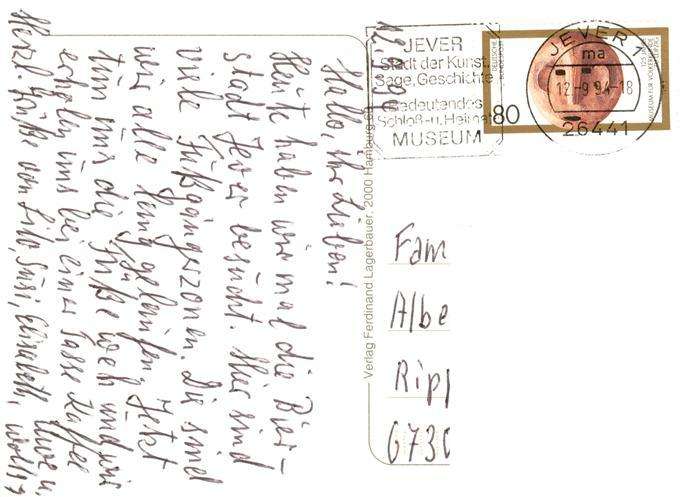 12.9.94
Hallo ihr Lieben!
Heute haben wir mal die Bier-
stadt Jever besucht. Hier sind
viele Fußgängerzonen. Die sind
wir alle lang gelaufen. Jetzt
tun uns die Füße weh und wir
erholen uns bei einer Tasse Kaffee
Herzl. Grüße von Lilo, Susi, Elisabeth, Uwe u.
Verlag Ferdinand Lagerbauer, 2000 Hamburg
JEVER
Stadt der Kunst,
Sage, Geschichte
Bedeutendes
Schloß-u. Heimat
MUSEUM
DEUTSCHE
BUNDESPOST
80
125 JAHRE
MUSEUM FÜR VÖLKERKUNDE
LEIPZIG
JEVER 1
ma
12.-9.94-18
26441
Fam
Albe
Ripp
6730